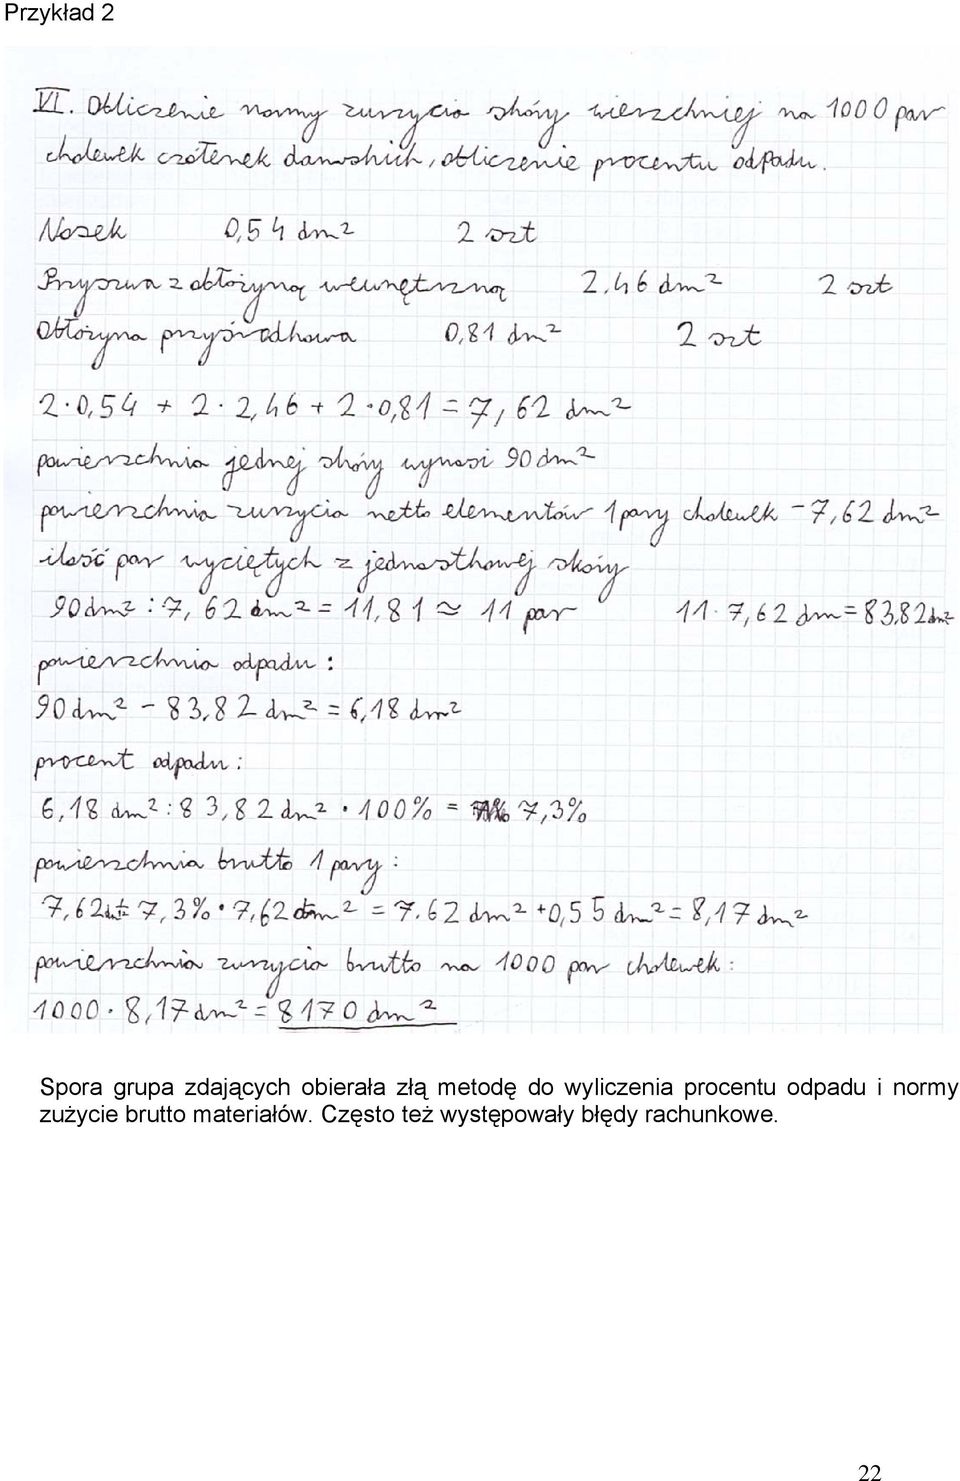 Przykład 2
VI. Obliczenie normy zużycia skóry wierzchniej na 1000 par
cholewek czółenek damskich, obliczenie procentu odpadu.
Nosek 0,54 dm² 2 szt
Przyszwa z obłożyną wewnętrzną 2,46 dm² 2 szt
Obłożyna przyśrodkowa 0,81 dm² 2 szt
2·0,54 + 2·2,46 + 2·0,81 = 7,62 dm²
powierzchnia jednej skóry wynosi 90 dm²
powierzchnia zużycia netto elementów 1 pary cholewek - 7,62 dm²
ilość par wyciętych z jednostkowej skóry
90dm² : 7,62 dm² = 11,81 ≈ 11 par 11·7,62 dm = 83,82dm²
powierzchnia odpadu :
90dm² - 83,82 dm² = 6,18 dm²
procent odpadu :
6,18 dm² : 83,82 dm² · 100% = 7,3%
powierzchnia brutto 1 pary :
7,62dm² + 7,3% · 7,62 dm² = 7,62 dm² + 0,55 dm² = 8,17 dm²
powierzchnia zużycia brutto na 1000 par cholewek :
1000 · 8,17 dm² = 8170 dm²
Spora grupa zdających obierała złą metodę do wyliczenia procentu odpadu i normy
zużycie brutto materiałów. Często też występowały błędy rachunkowe.
22